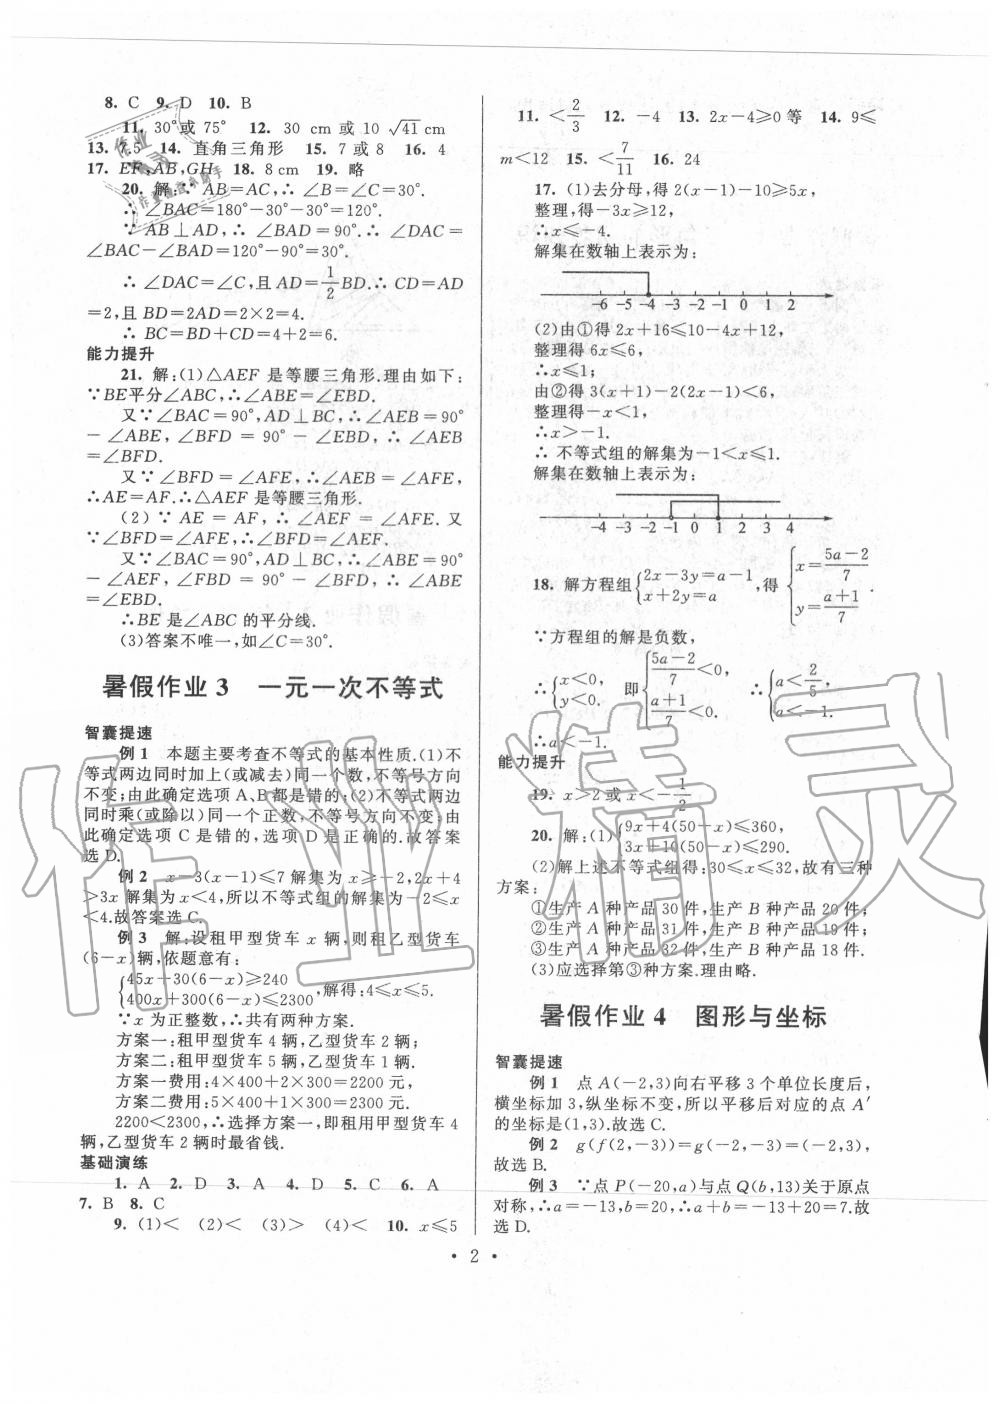 8. C 9. D 10. B
11. 30°或 75° 12. 30 cm 或 10 √41 cm
13. 7.5 14. 直角三角形 15. 7 或 8 16. 4
17. EF,AB,GH 18. 8 cm 19. 略
20. 解:∵ AB=AC,∴ ∠B=∠C=30°.
∴ ∠BAC=180°-30°-30°=120°.
∵ AB⊥AD,∴ ∠BAD=90°.∴ ∠DAC=
∠BAC-∠BAD=120°-90°=30°.
∴ ∠DAC=∠C,且 AD=1/2 BD.∴ CD=AD
=2,且 BD=2AD=2×2=4.
∴ BC=BD+CD=4+2=6.
能力提升
21. 解:(1)△AEF 是等腰三角形.理由如下:
∵BE平分∠ABC,∴∠ABE=∠EBD.
又∵∠BAC=90°,AD⊥BC,∴∠AEB=90°
-∠ABE,∠BFD=90°-∠EBD,∴ ∠AEB
=∠BFD.
又∵∠BFD=∠AFE,∴∠AEB=∠AFE,
∴AE=AF.∴△AEF 是等腰三角形.
(2)∵ AE=AF,∴ ∠AEF=∠AFE.又
∵∠BFD=∠AFE,∴∠AEF=∠BFD.
又∵∠BAC=90°,AD⊥BC,∴∠ABE=90°
-∠AEF,∠FBD=90°-∠BFD,∴ ∠ABE
=∠EBD.
∴BE 是∠ABC 的平分线.
(3)答案不唯一,如∠C=30°.
暑假作业 3 一元一次不等式
智囊提速
例 1 本题主要考查不等式的基本性质.(1)不
等式两边同时加上(或减去)同一个数,不等号方向
不变;由此确定选项 A、B都是错的;(2)不等式两边
同时乘(或除以)同一个正数,不等号方向不变;由
此确定选项 C 是错的,选项 D 是正确的.故答案
选 D.
例 2 x-3(x-1)≤7 解集为 x≥-2,2x+4
>3x 解集为 x<4,所以不等式组的解集为-2≤x
<4.故答案选 C.
例 3 解:设租甲型货车 x 辆,则租乙型货车
(6-x)辆,依题意有:
{45x+30(6-x)≥240
400x+300(6-x)≤2300,解得:4≤x≤5.
∵x 为正整数,∴共有两种方案.
方案一:租甲型货车 4 辆,乙型货车 2 辆;
方案二:租甲型货车 5 辆,乙型货车 1 辆.
方案一费用:4×400+2×300=2200 元,
方案二费用:5×400+1×300=2300 元,
2200<2300,∴选择方案一,即租用甲型货车 4
辆,乙型货车 2 辆时最省钱.
基础演练
1. A 2. D 3. A 4. D 5. C 6. A
7. B 8. C
9. (1)< (2)< (3)> (4)< 10. x≤5
11. <2/3 12. -4 13. 2x-4≥0 等 14. 9≤
m<12 15. <7/11 16. 24
17. (1)去分母,得 2(x-1)-10≥5x,
整理,得-3x≥12,
∴x≤-4.
解集在数轴上表示为:
-6 -5 -4 -3 -2 -1 0 1 2
(2)由①得 2x+16≤10-4x+12,
整理得 6x≤6,
∴x≤1;
由②得 3(x+1)-2(2x-1)<6,
整理得-x<1,
∴x>-1.
∴ 不等式组的解集为-1<x≤1.
解集在数轴上表示为:
-4 -3 -2 -1 0 1 2 3 4
18. 解方程组{2x-3y=a-1 x+2y=a ,得{x=(5a-2)/7 y=(a+1)/7
∵方程组的解是负数,
∴{x<0, y<0. 即{(5a-2)/7<0, (a+1)/7<0. ∴{a<2/5, a<-1.
∴a<-1.
能力提升
19. x>2 或 x<-1/2
20. 解:(1){9x+4(50-x)≤360,
3x+10(50-x)≤290.
(2)解上述不等式组得:30≤x≤32,故有三种
方案:
①生产 A 种产品 30 件,生产 B 种产品 20 件;
②生产 A 种产品 31 件,生产 B 种产品 19 件;
③生产 A 种产品 32 件,生产 B 种产品 18 件.
(3)应选择第③种方案.理由略.
暑假作业 4 图形与坐标
智囊提速
例 1 点 A(-2,3)向右平移 3 个单位长度后,
横坐标加 3,纵坐标不变,所以平移后对应的点 A′
的坐标是(1,3).故选 C.
例 2 g(f(2,-3))=g(-2,-3)=(-2,3),
故选 B.
例 3 ∵点 P(-20,a)与点 Q(b,13)关于原点
对称,∴a=-13,b=20,∴a+b=-13+20=7.故
选 D.
• 2 •
作业精灵